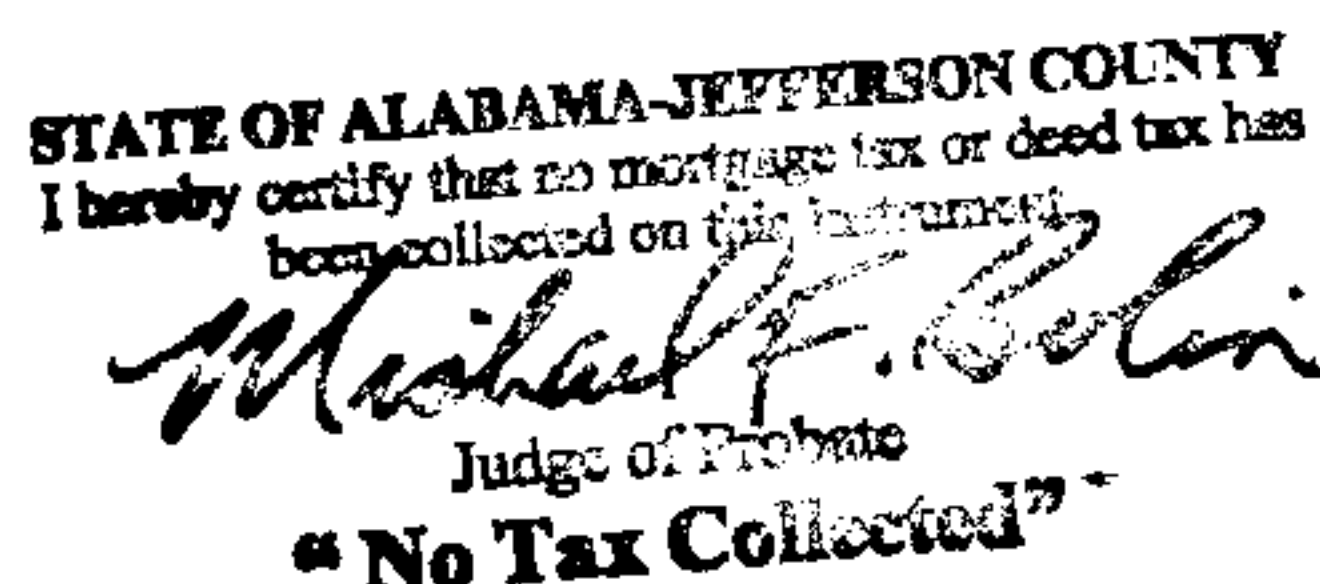 STATE OF ALABAMA-JEFFERSON COUNTY
I hereby certify that no mortgage tax or deed tax has
been collected on this instrument
Michael F. Bolin
Judge of Probate
“ No Tax Collected”